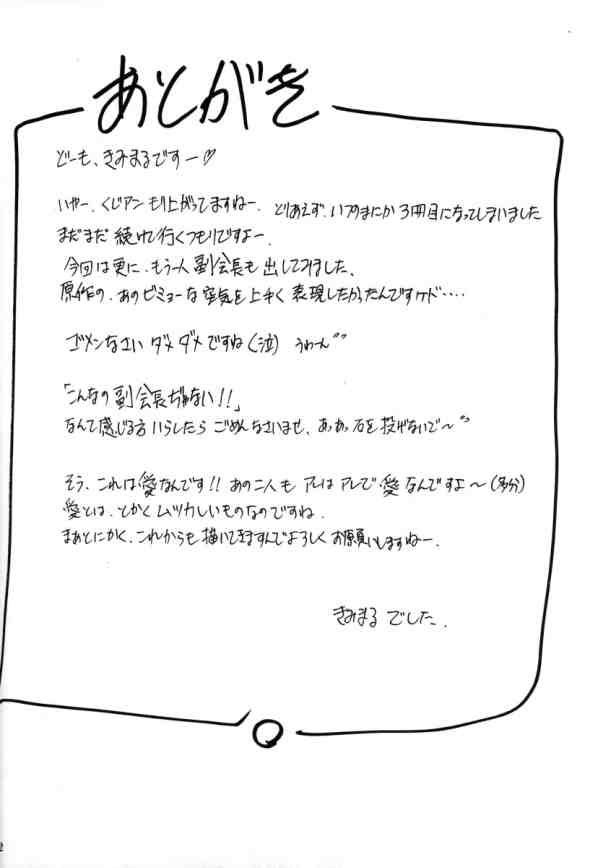 あとがき
どーも、きみまるですー♡
いやー、くじアンもり上がってますねー。とりあえず、いつのまにか3冊目になってしまいました
まだまだ続けて行くつもりですよー。
今回は更に、もう一人副会長も出してみました。
原作の、あのビミョーな空気を上手く表現したかったんですケド‥‥
ゴメンなさいダメダメですね(泣) うわーん
「こんなの副会長ぢゃない!!」
なんて感じる方いらしたらごめんなさいませ、あっあっ石を投げないで〜
そう、これは愛なんです!!あの二人もアレはアレで愛なんですよ〜(多分)
愛とは、とかくムツカしいものなのですね。
まぁとにかく、これからも描いてきますんでよろしくお願いしますねー。
きみまるでした。
2